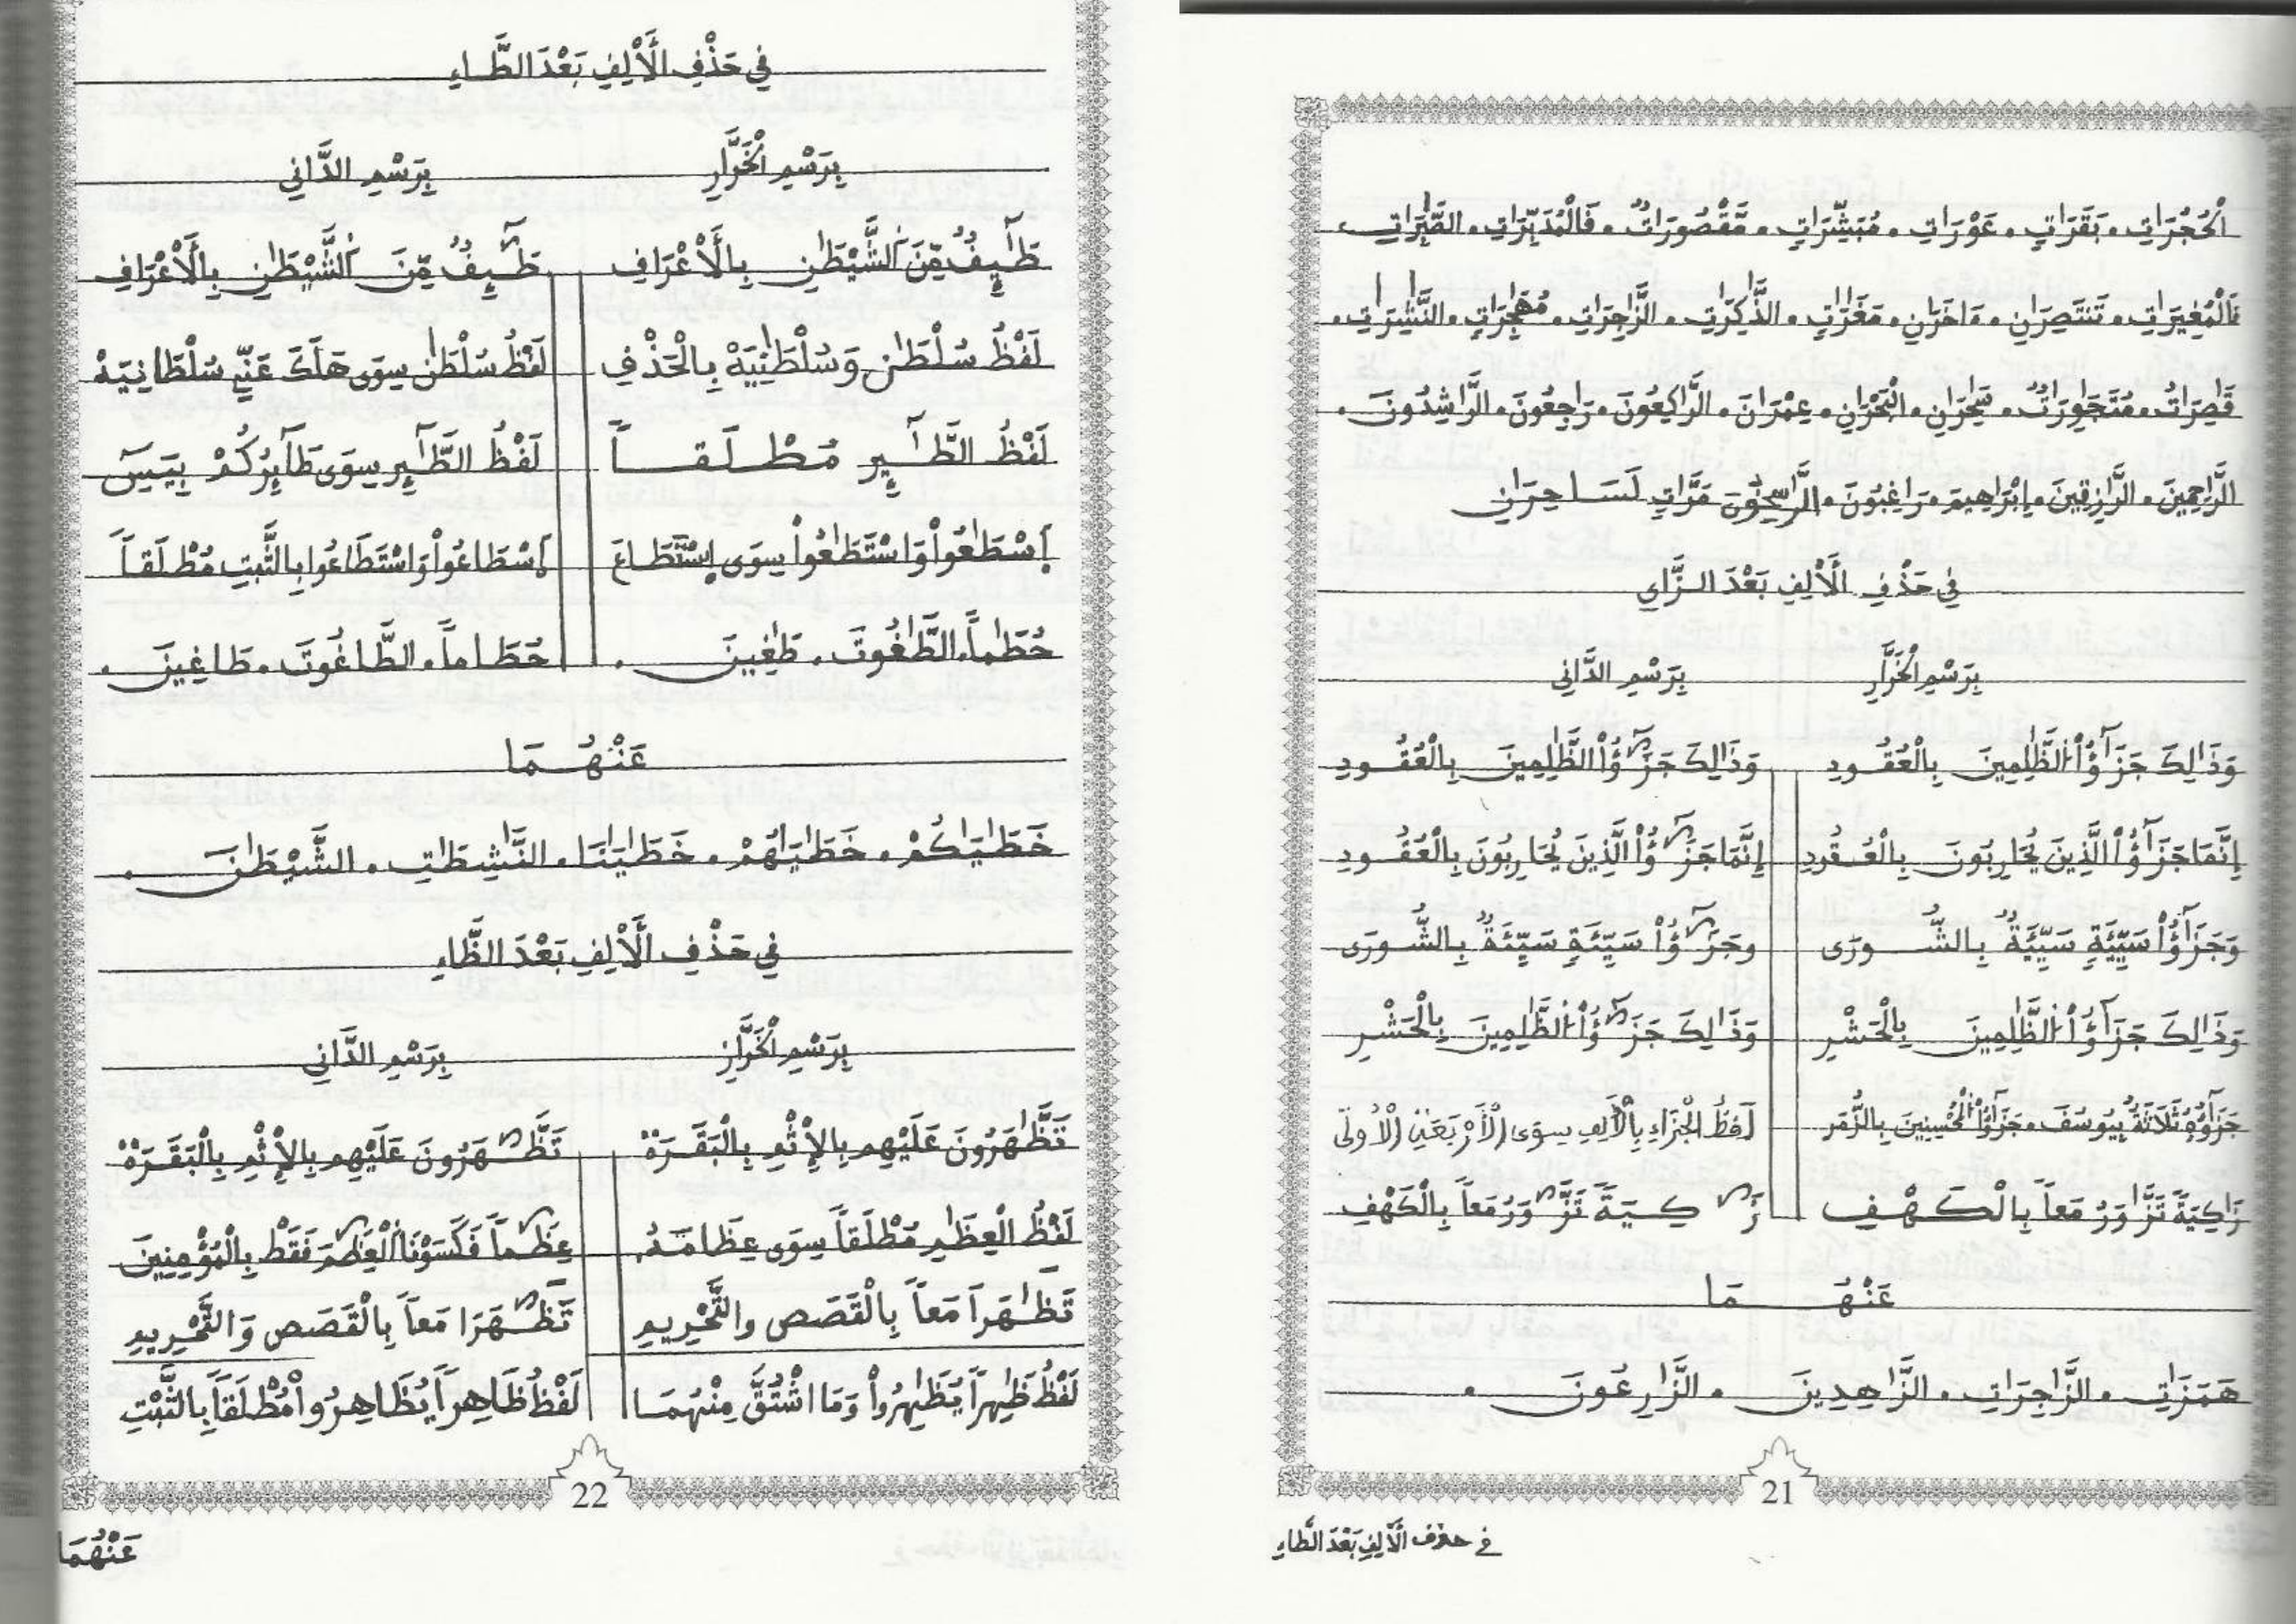 اَلْحُجُرَاتِ. بَقَرَاتٍ. عَوْرَاتِ. مُبَشِّرَاتٍ. مَّقْصُورَاتٌ. فَالْمُدَبِّرَاتِ. الصَّٰبِرَاتِ.
فَالْمُغِيرَاتِ. تَنتَصِرَانِ. ءَاخَرَانِ. مَغَٰرَٰتٍ. الذَّٰكِرَٰتِ. الزَّٰجِرَاتِ. مُهَٰجِرَٰتٍ. النَّٰشِرَاتِ.
قَٰصِرَاتُ. مُتَجَٰوِرَاتٌ. سَٰحِرَانِ. الْبَحْرَانِ. عِمْرَانَ. الرَّٰكِعُونَ. رَاجِعُونَ. الرَّاشِدُونَ.
الرَّاحِمِينَ. الرَّازِقِينَ. إِبْرَاهِيمَ. رَاغِبُونَ. الرَّاسِخُونَ مَرَّاتٍ لَسَاحِرَانِ
فِي حَذْفِ الَالِفِ بَعْدَ الزَّايِ
بِرَسْمِ الْخَرَّازِ بِرَسْمِ الدَّانِي
وَذَالِكَ جَزَٰٓؤُاْ الظَّٰلِمِينَ بِالْعُقُودِ وَذَالِكَ جَزَٰٓؤُاْ الظَّٰلِمِينَ بِالْعُقُودِ
إِنَّمَا جَزَٰٓؤُاْ الذِينَ يُحَارِبُونَ بِالْعُقُودِ إِنَّمَا جَزَٰٓؤُاْ الذِينَ يُحَارِبُونَ بِالْعُقُودِ
وَجَزَٰٓؤُاْ سَيِّئَةٍ سَيِّئَةٌ بِالشُّورَى وَجَزَٰٓؤُاْ سَيِّئَةٍ سَيِّئَةٌ بِالشُّورَى
وَذَالِكَ جَزَٰٓؤُاْ الظَّٰلِمِينَ بِالْحَشْرِ وَذَالِكَ جَزَٰٓؤُاْ الظَّٰلِمِينَ بِالْحَشْرِ
جَزَٰٓؤُهُ ثَلَاثَةٌ بِيُوسُفَ. جَزَٰٓؤُاْ الْمُحْسِنِينَ بِالزُّمَرِ لَفْظُ الْجَزَاءِ بِالَالِفِ سِوَى الَارْبَعَةِ الُاولَى
زَٰكِيَةً تَزَّٰوَرُ مَعاً بِالْكَهْفِ زَٰكِيَةً تَزَّٰوَرُ مَعاً بِالْكَهْفِ
عَنْهُمَا
هَمَزَٰتِ. الزَّٰجِرَاتِ. الزَّاهِدِينَ. الزَّارِعُونَ.
21
في حذف الَالِفِ بَعْدَ الطَّاءِ
فِي حَذْفِ الَالِفِ بَعْدَ الطَّاءِ
بِرَسْمِ الْخَرَّازِ بِرَسْمِ الدَّانِي
طَٰٓئِفٌ مِّنَ الشَّيْطَٰنِ بِالَاعْرَافِ طَٰٓئِفٌ مِّنَ الشَّيْطَٰنِ بِالَاعْرَافِ
لَفْظُ سُلْطَٰنٍ وَسُلْطَٰنِيَهْ بِالْحَذْفِ لَفْظُ سُلْطَٰنٍ سِوَى هَلَكَ عَنِّي سُلْطَانِيَهْ
لَفْظُ الطَّٰٓئِرِ مُطْلَقاً لَفْظُ الطَّٰٓئِرِ سِوَى طَآئِرُكُمْ بِيَسَ
اِسْطَٰعُواْ وَاسْتَطَٰعُواْ سِوَى اِسْتَطَاعَ اِسْطَاعُواْ وَاسْتَطَاعُوا بِالثَّبْتِ مُطْلَقاً
حُطَٰماً. الطَّٰغُوتَ. طَٰغِينَ. حُطَاماً. الطَّاغُوتَ. طَاغِينَ.
عَنْهُمَا
خَطَٰيَٰكُمْ. خَطَٰيَٰهُمْ. خَطَٰيَٰنَا. النَّٰشِطَٰتِ. الشَّيْطَٰنَ.
فِي حَذْفِ الَالِفِ بَعْدَ الظَّاءِ
بِرَسْمِ الْخَرَّازِ بِرَسْمِ الدَّانِي
تَظَّٰهَرُونَ عَلَيْهِم بِالِاثْمِ بِالْبَقَرَةْ تَظَّٰهَرُونَ عَلَيْهِم بِالِاثْمِ بِالْبَقَرَةْ
لَفْظُ الْعِظَٰمِ مُطْلَقاً سِوَى عِظَامَهُ. عِظَٰماً فَكَسَوْنَا الْعِظَٰمَ فَقَطْ بِالْمُؤْمِنِينَ
تَظَٰهَرَا مَعاً بِالْقَصَصِ وَالتَّحْرِيمِ تَظَّٰهَرَا مَعاً بِالْقَصَصِ وَالتَّحْرِيمِ
لَفْظُ ظَٰهِراً يُظَٰهِرُواْ وَمَا اشْتُقَّ مِنْهُمَا لَفْظُ ظَاهِراً يُظَاهِرُواْ مُطْلَقاً بِالثَّبْتِ
22
عَنْهُمَا